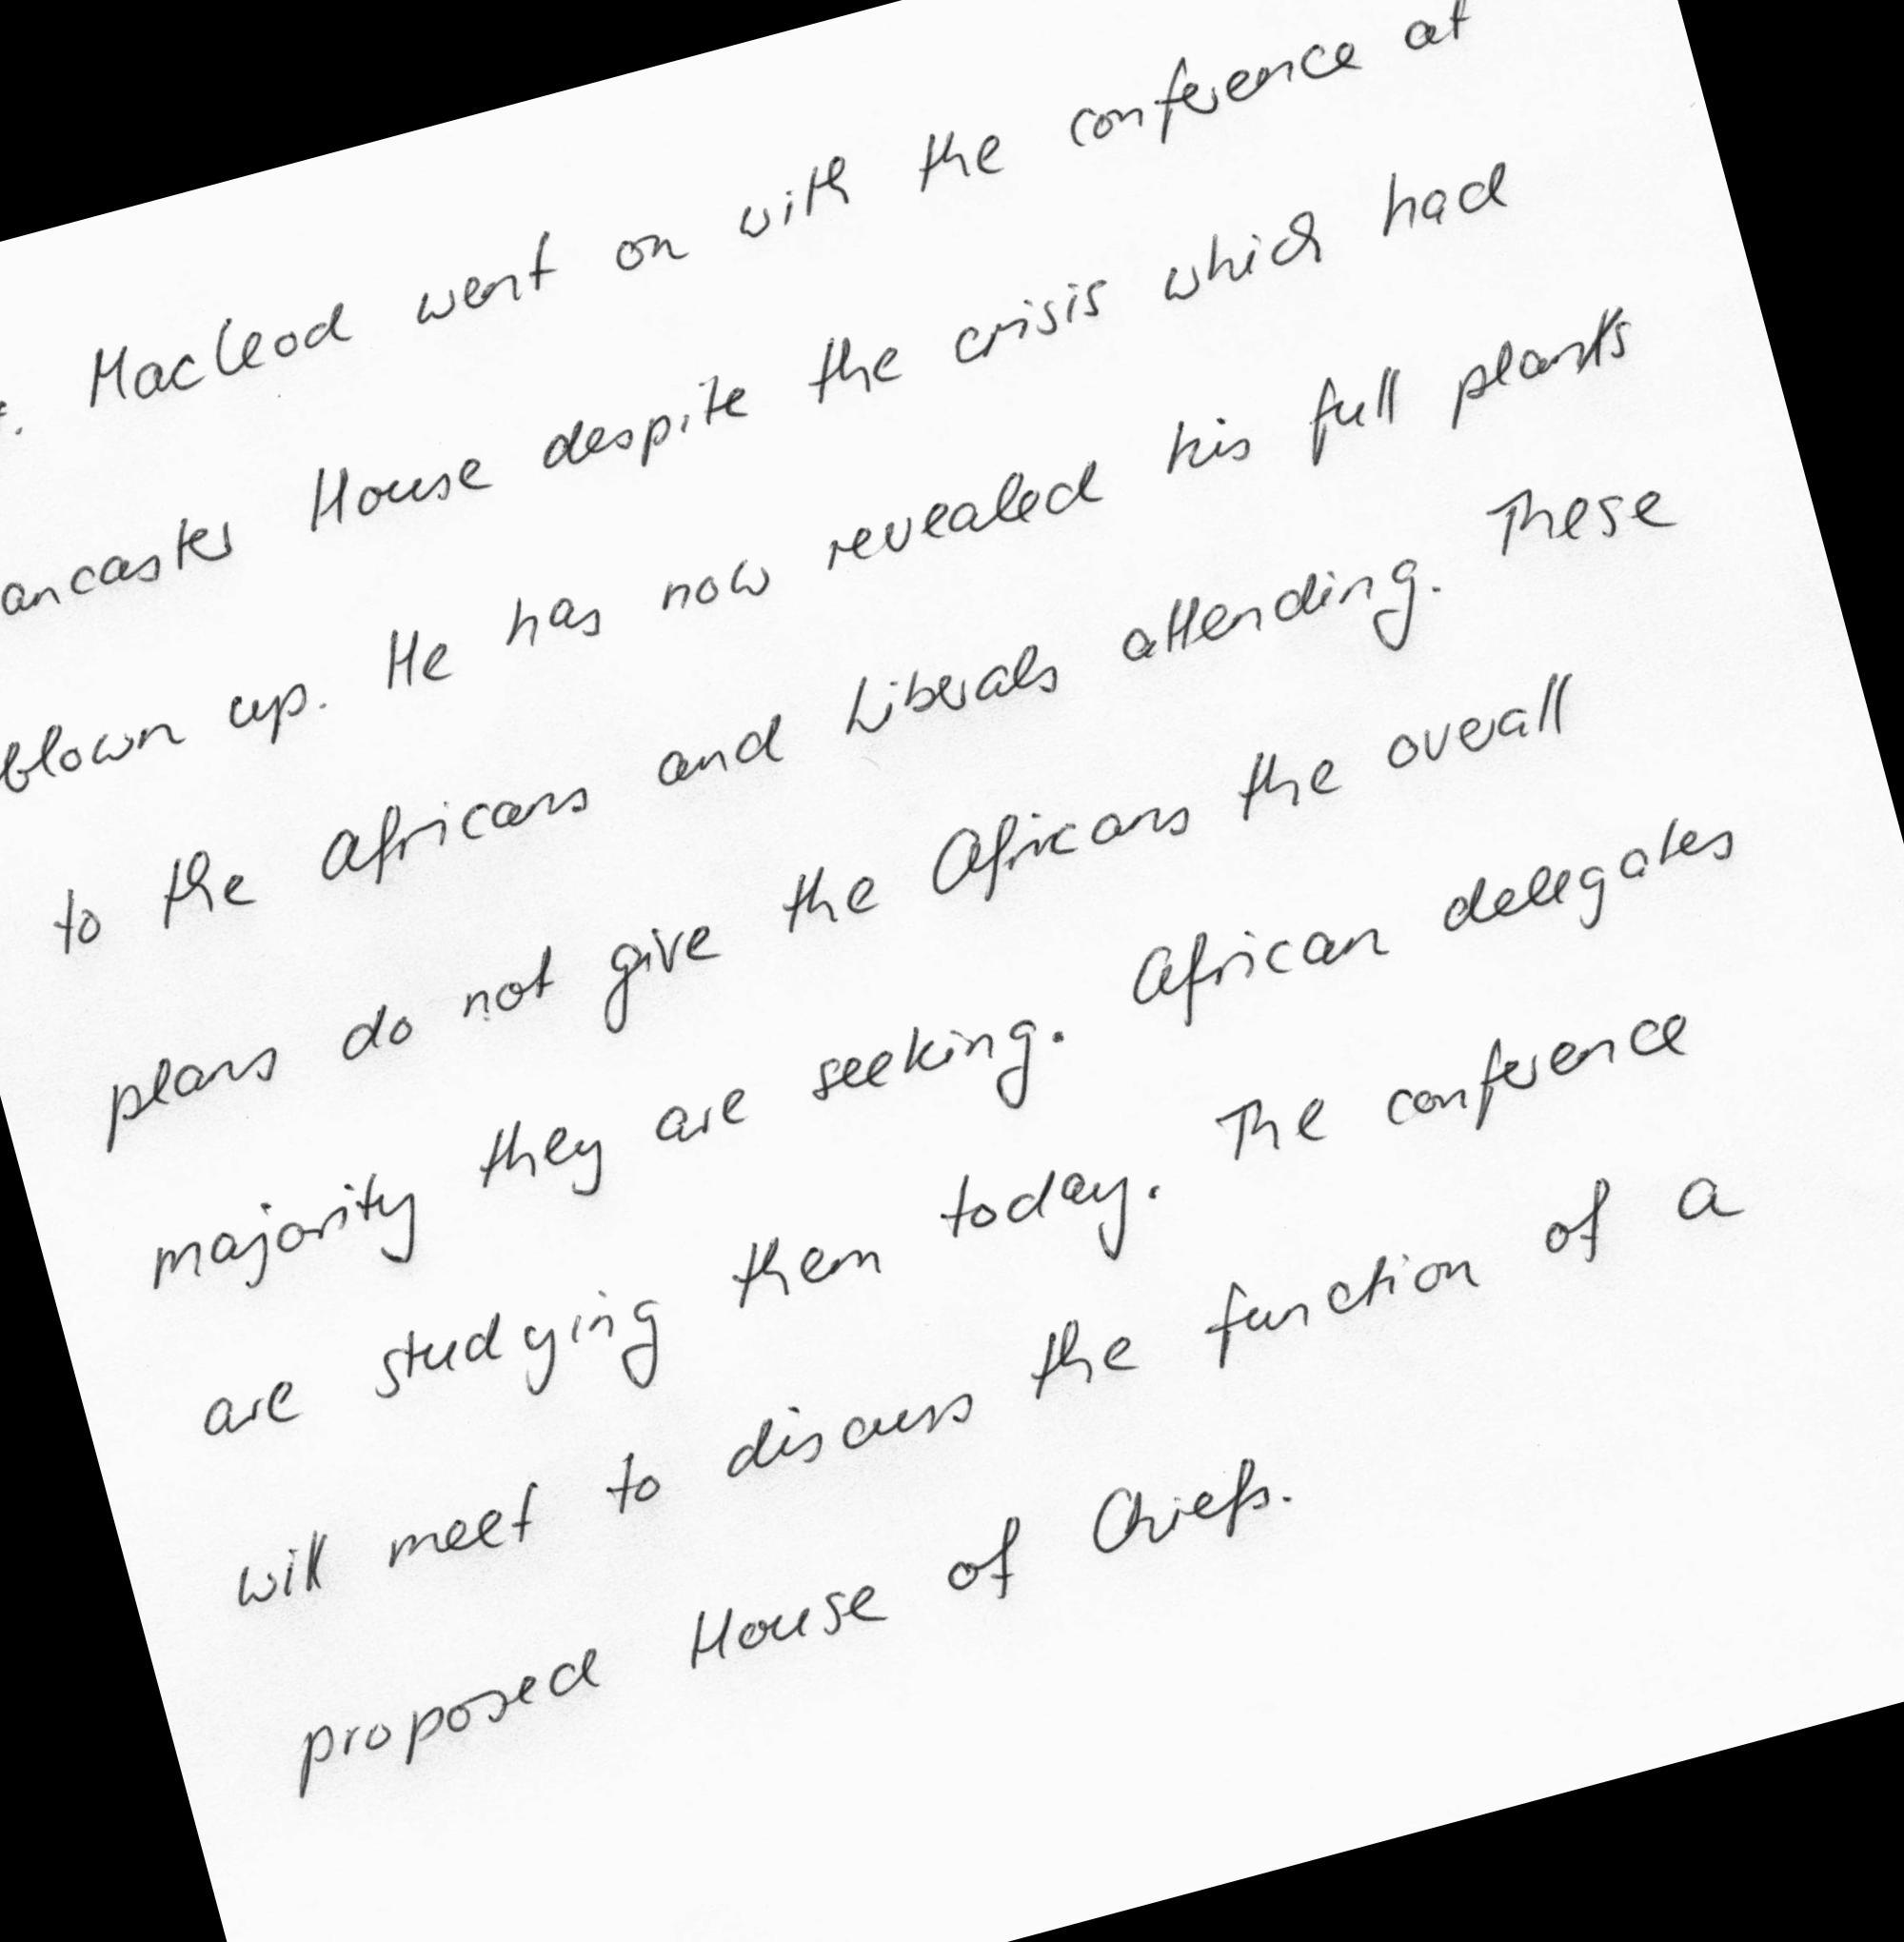 . Macleod went on with the conference at
ancaster House despite the crisis which had
blown up. He has now revealed his full plans
to the Africans and Liberals attending. These
plans do not give the Africans the overall
majority they are seeking. African delegates
are studying them today. The conference
will meet to discuss the function of a
proposed House of Chiefs.